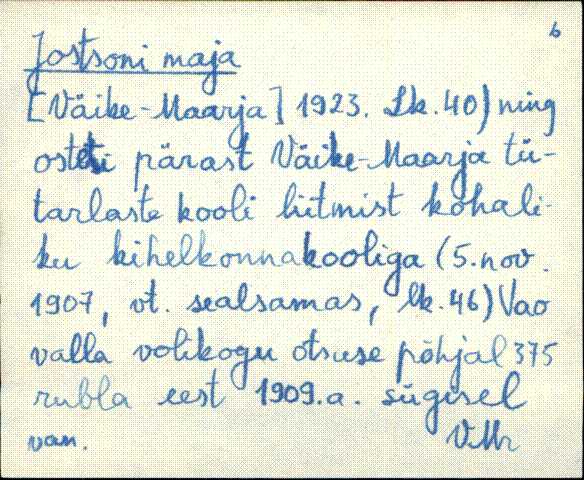 6
Jostsoni maja
[Väike-Maarja] 1923. Lk. 40) ning
osteti pärast Väike-Maarja tü-
tarlaste kooli liitmist kohali-
ku kihelkonnakooliga (5. nov.
1907, vt. sealsamas, lk. 46) Vao
valla volikogu otsuse põhjal 375
rubla eest 1909. a. sügisel
van.